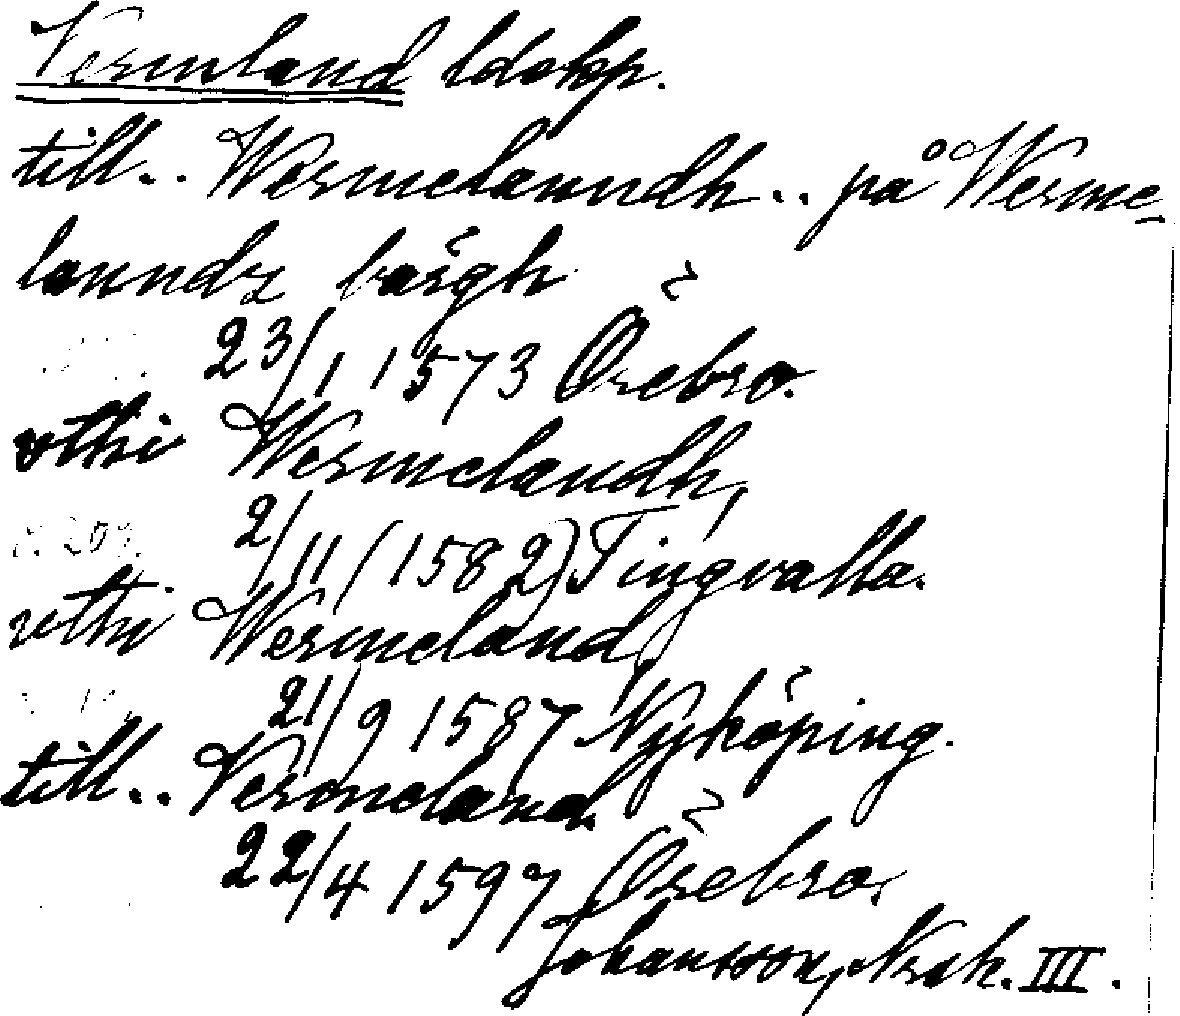 Vermland ldskp.
till.. Wermelanndh.. på Werme-
lanndz bärgh
23/1 1573 Örebro.
vthi Wermelandh,
2/11 (1582) Tingvalla.
vthi Wermeland,
21/9 1587 Nyköping.
till.. Vermeland.
22/4 1597 Örebro.
Johansson, Nrsk. III.